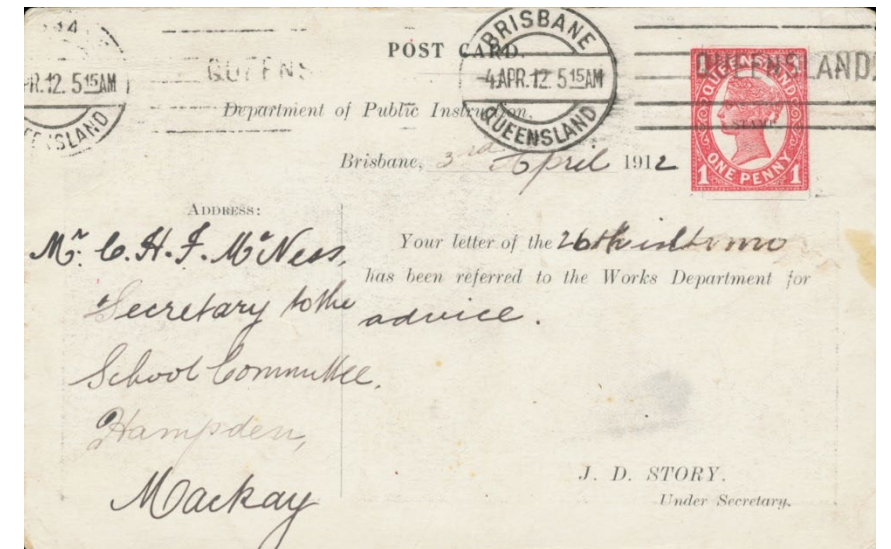 POST CARD.
BRISBANE
4 APR. 12. 5 15 AM
QUEENSLAND
R. 12. 5 15 AM
QUEENSLAND
QUEENS
QUEENSLAND
QUEENSLAND
1 ONE PENNY 1
Department of Public Instruction.
Brisbane, 3rd April 1912
ADDRESS:
Mr. C. H. F. McNess,
Secretary to the
School Committee,
Hampden,
Mackay
Your letter of the 26th
has been referred to the Works Department for
advice.
J. D. STORY.
Under Secretary.